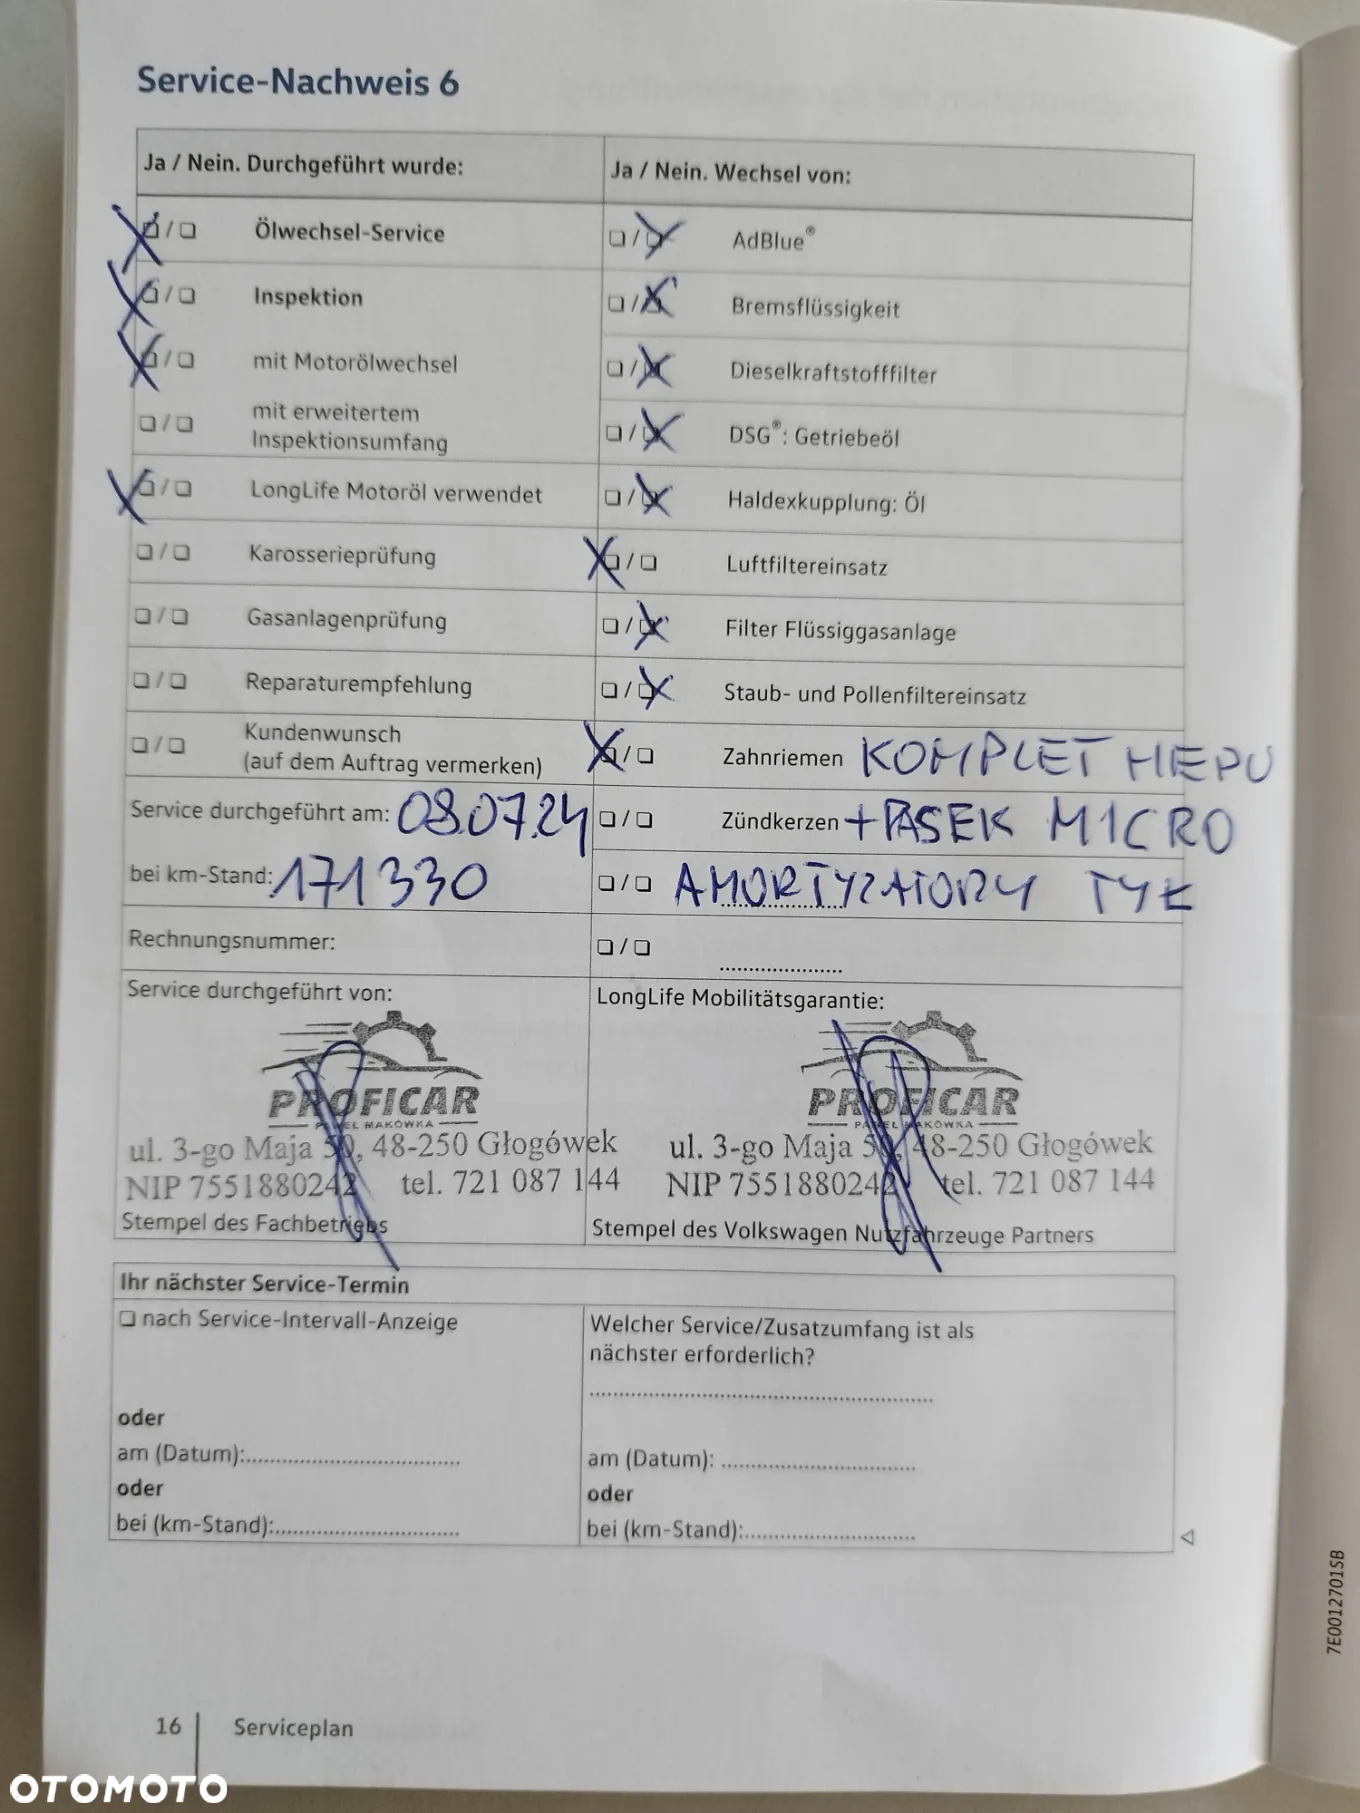 Service-Nachweis 6
Ja / Nein. Durchgeführt wurde:
Ja / Nein. Wechsel von:
❏ / ❏ Ölwechsel-Service
❏ / ❏ AdBlue®
❏ / ❏ Inspektion
❏ / ❏ Bremsflüssigkeit
❏ / ❏ mit Motorölwechsel
❏ / ❏ Dieselkraftstofffilter
❏ / ❏ mit erweitertem
Inspektionsumfang
❏ / ❏ DSG®: Getriebeöl
❏ / ❏ LongLife Motoröl verwendet
❏ / ❏ Haldexkupplung: Öl
❏ / ❏ Karosserieprüfung
❏ / ❏ Luftfiltereinsatz
❏ / ❏ Gasanlagenprüfung
❏ / ❏ Filter Flüssiggasanlage
❏ / ❏ Reparaturempfehlung
❏ / ❏ Staub- und Pollenfiltereinsatz
❏ / ❏ Kundenwunsch
(auf dem Auftrag vermerken)
❏ / ❏ Zahnriemen KOMPLET HEPU
Service durchgeführt am: 08.07.24
❏ / ❏ Zündkerzen +PASEK MICRO
bei km-Stand: 171330
❏ / ❏ AMORTYZATORY TYŁ
Rechnungsnummer:
❏ / ❏ .....................
Service durchgeführt von:
PROFICAR
PAWEŁ MAKÓWKA
ul. 3-go Maja 50, 48-250 Głogówek
NIP 7551880242 tel. 721 087 144
Stempel des Fachbetriebs
LongLife Mobilitätsgarantie:
PROFICAR
PAWEŁ MAKÓWKA
ul. 3-go Maja 50, 48-250 Głogówek
NIP 7551880242 tel. 721 087 144
Stempel des Volkswagen Nutzfahrzeuge Partners
Ihr nächster Service-Termin
❏ nach Service-Intervall-Anzeige
oder
am (Datum):.....................................
oder
bei (km-Stand):...............................
Welcher Service/Zusatzumfang ist als
nächster erforderlich?
...........................................................
am (Datum): .................................
oder
bei (km-Stand):.............................
7E0012701SB
16 Serviceplan
OTOMOTO